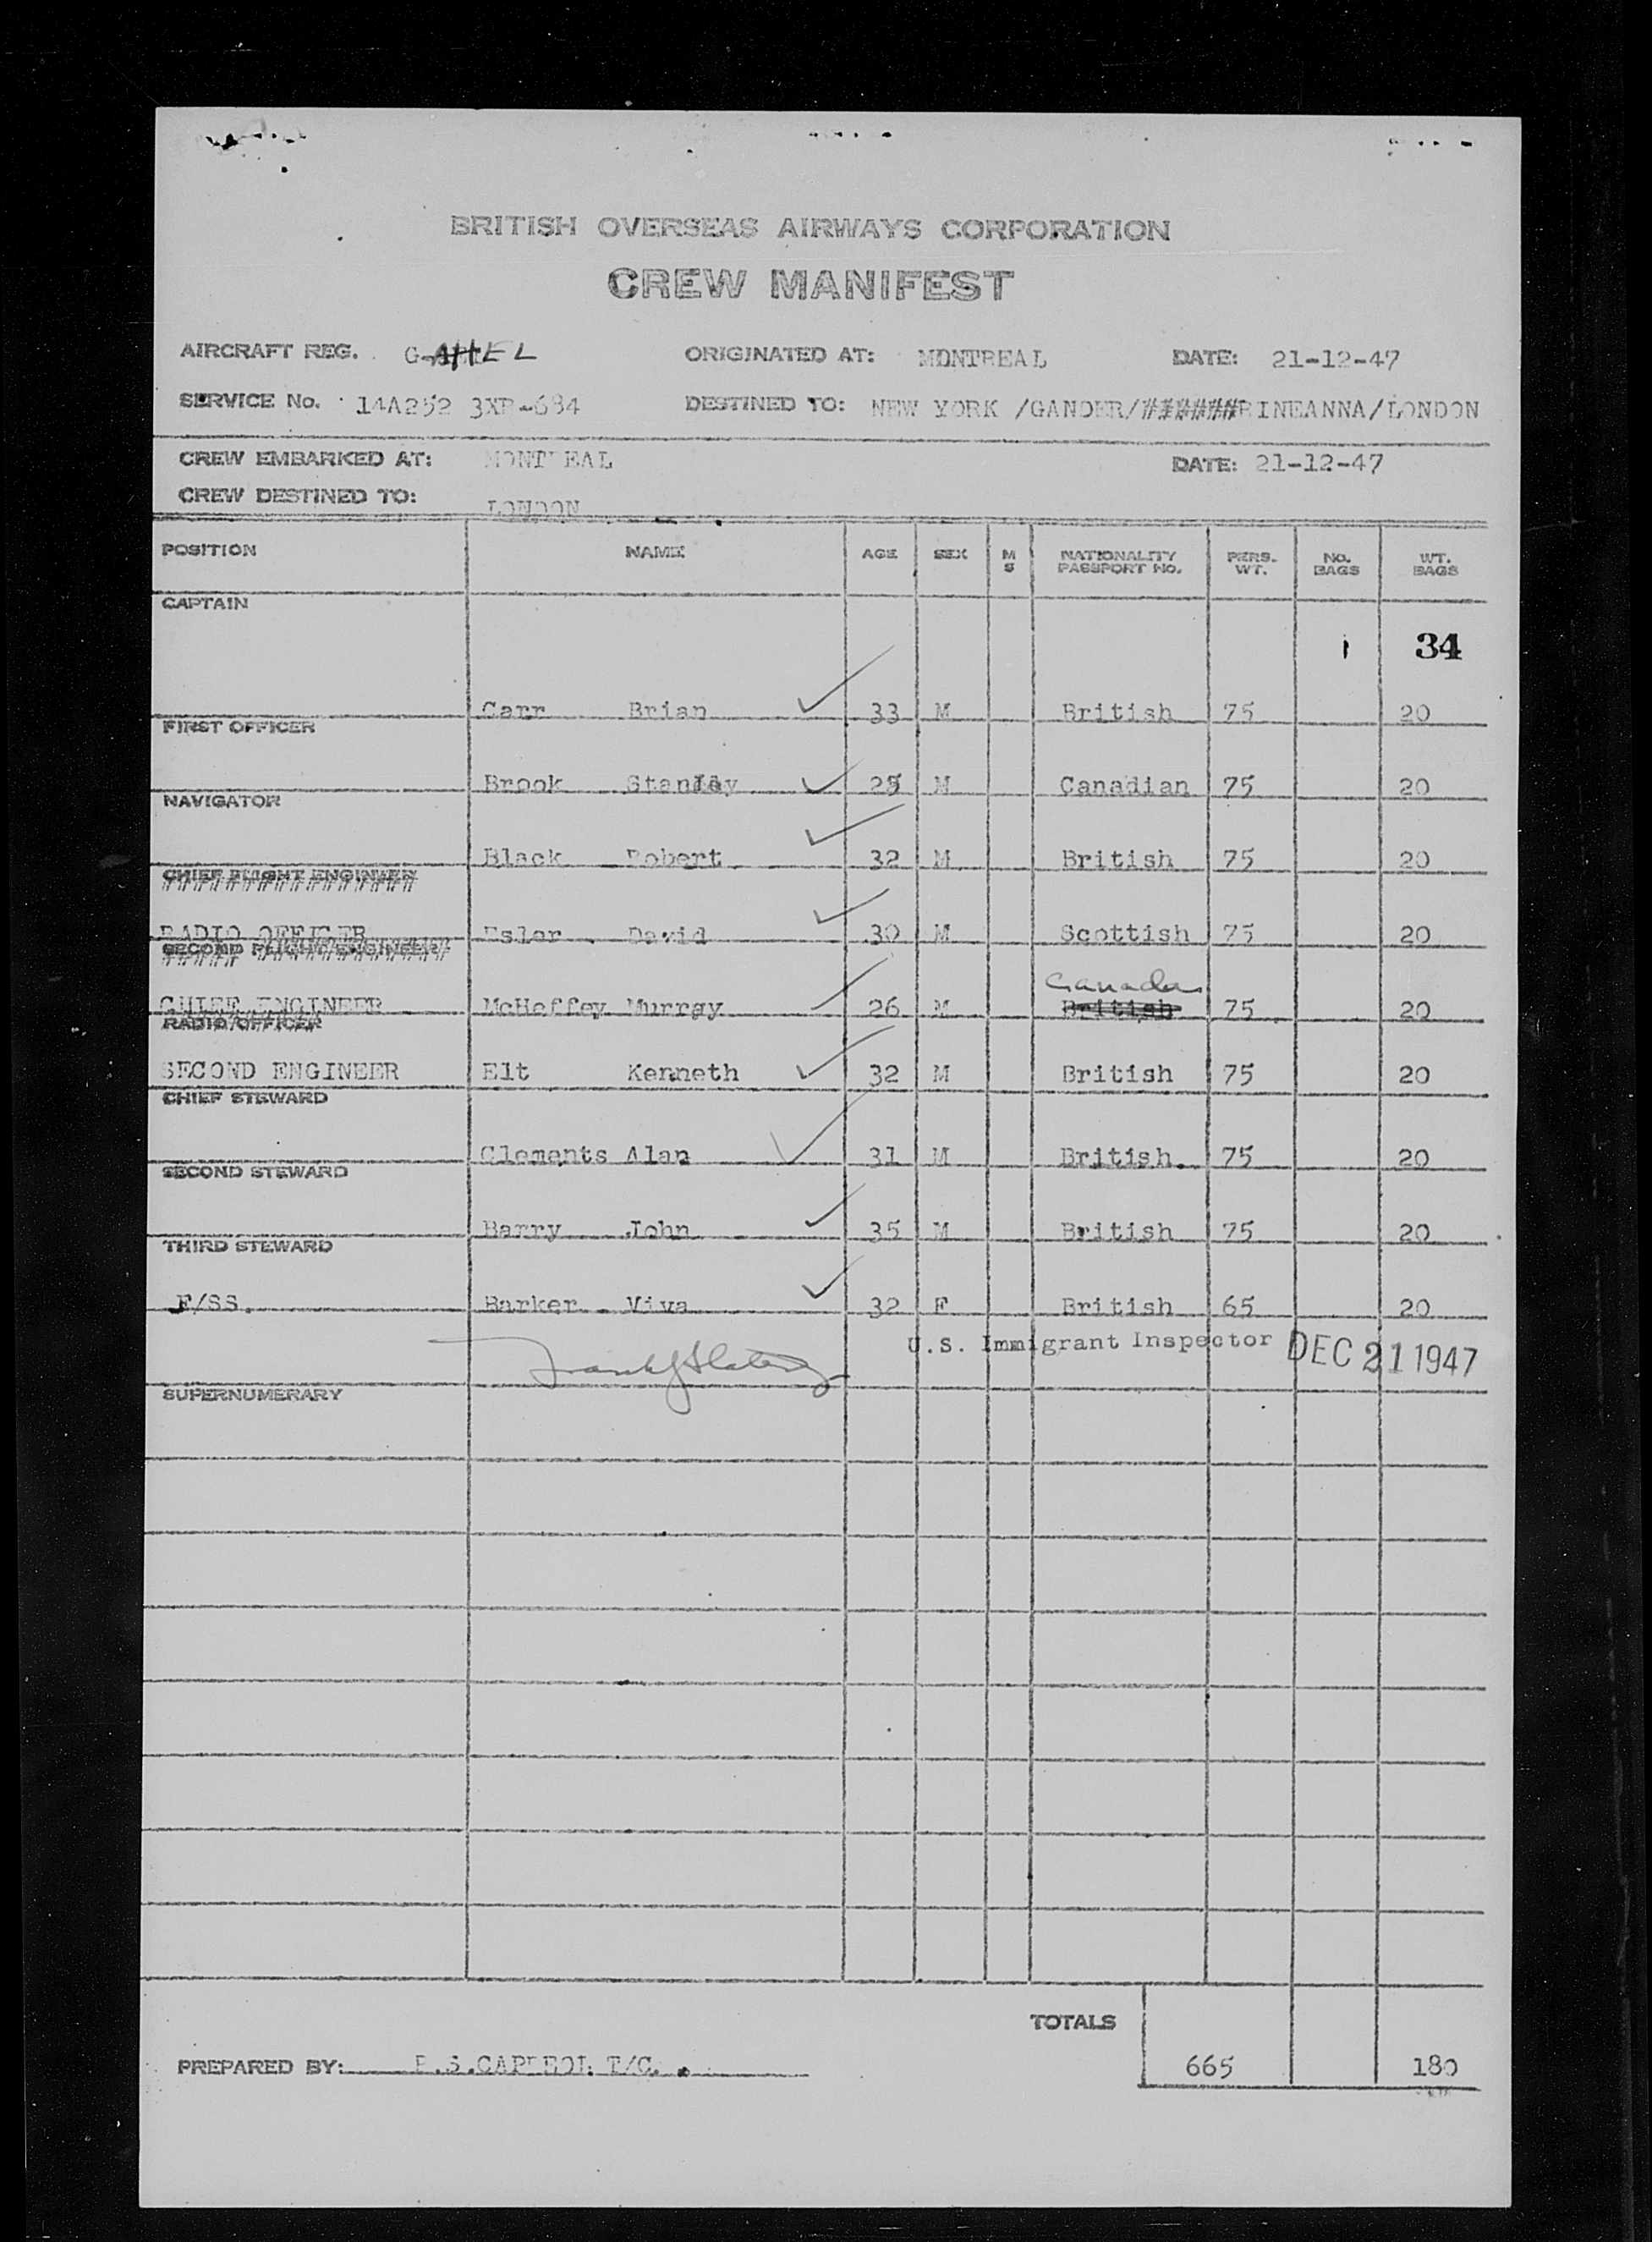 BRITISH OVERSEAS AIRWAYS CORPORATION
CREW MANIFEST
AIRCRAFT REG. G-AHEL ORIGINATED AT: MONTREAL DATE: 21-12-47
SERVICE No. 14A252 3XP-684 DESTINED TO: NEW YORK /GANDER/######RINEANNA/LONDON
CREW EMBARKED AT: MONTREAL DATE: 21-12-47
CREW DESTINED TO: LONDON
POSITION NAME AGE SEX M S NATIONALITY PASSPORT NO. PERS. WT. NO. BAGS WT. BAGS
CAPTAIN
1 34
Carr Brian 33 M British 75 20
FIRST OFFICER
Brook Stanley M Canadian 75 20
NAVIGATOR
Black Robert 32 M British 75 20
CHIEF FLIGHT ENGINEER
RADIO OFFICER Esler David 30 M Scottish 75 20
SECOND FLIGHT ENGINEER
Canada
CHIEF ENGINEER McHeffey Murray 26 M British 75 20
RADIO OFFICER
SECOND ENGINEER Elt Kenneth 32 M British 75 20
CHIEF STEWARD
Clements Alan 31 M British. 75 20
SECOND STEWARD
Barry John 35 M British 75 20
THIRD STEWARD
F/SS. Barker Viva 32 F British 65 20
U.S. Immigrant Inspector DEC 21 1947
SUPERNUMERARY
TOTALS
PREPARED BY: T/C. 665 180